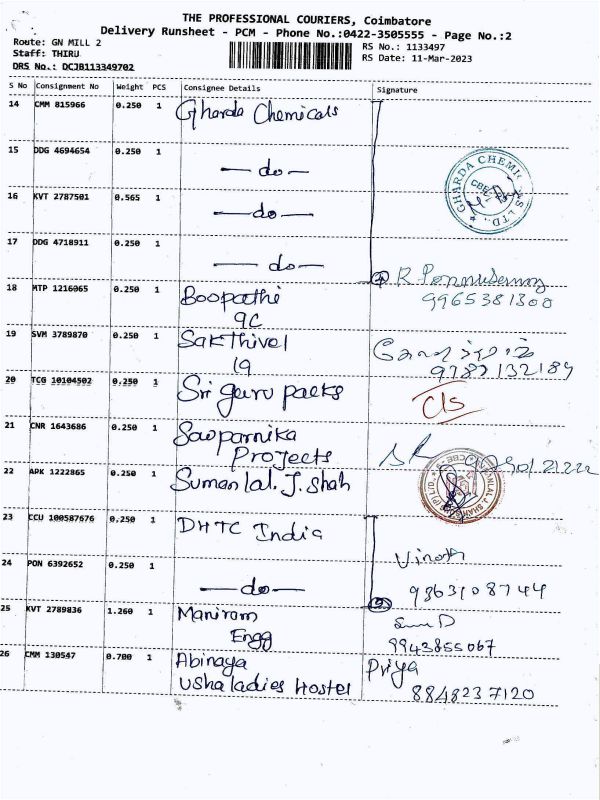 THE PROFESSIONAL COURIERS, Coimbatore
Delivery Runsheet - PCM - Phone No.:0422-3505555 - Page No.:2
Route: GN MILL 2
Staff: THIRU
DRS No.: DCJB113349702
RS No.: 1133497
RS Date: 11-Mar-2023
S No Consignment No Weight PCS Consignee Details Signature
14 CMM 815966 0.250 1 Gharda Chemicals
15 DDG 4694654 0.250 1 — do —
GHARDA CHEMI
LS LTD.
CBE
16 KVT 2787501 0.565 1 — do —
17 DDG 4718911 0.250 1 — do —
4 R Ponnuswamy
18 MTP 1216065 0.250 1 Boopathi 9965381300
9C
19 SVM 3789870 0.250 1 Sakthivel
19
9787132184
20 TCG 10104502 0.250 1 Sri guru packs Cls
21 CNR 1643686 0.250 1 Sowparnika
Projects
22 APK 1222865 0.250 1 Sumanlal. J. Shah
23 CCU 100587676 0.250 1 DHTC India
Vinoth
24 PON 6392652 0.250 1 — do — 9363108744
2
25 KVT 2789836 1.260 1 Maniram
Engg 9943855067
26 CMM 130547 0.700 1 Abinaya Priya
Usha ladies Hostel 8848237120